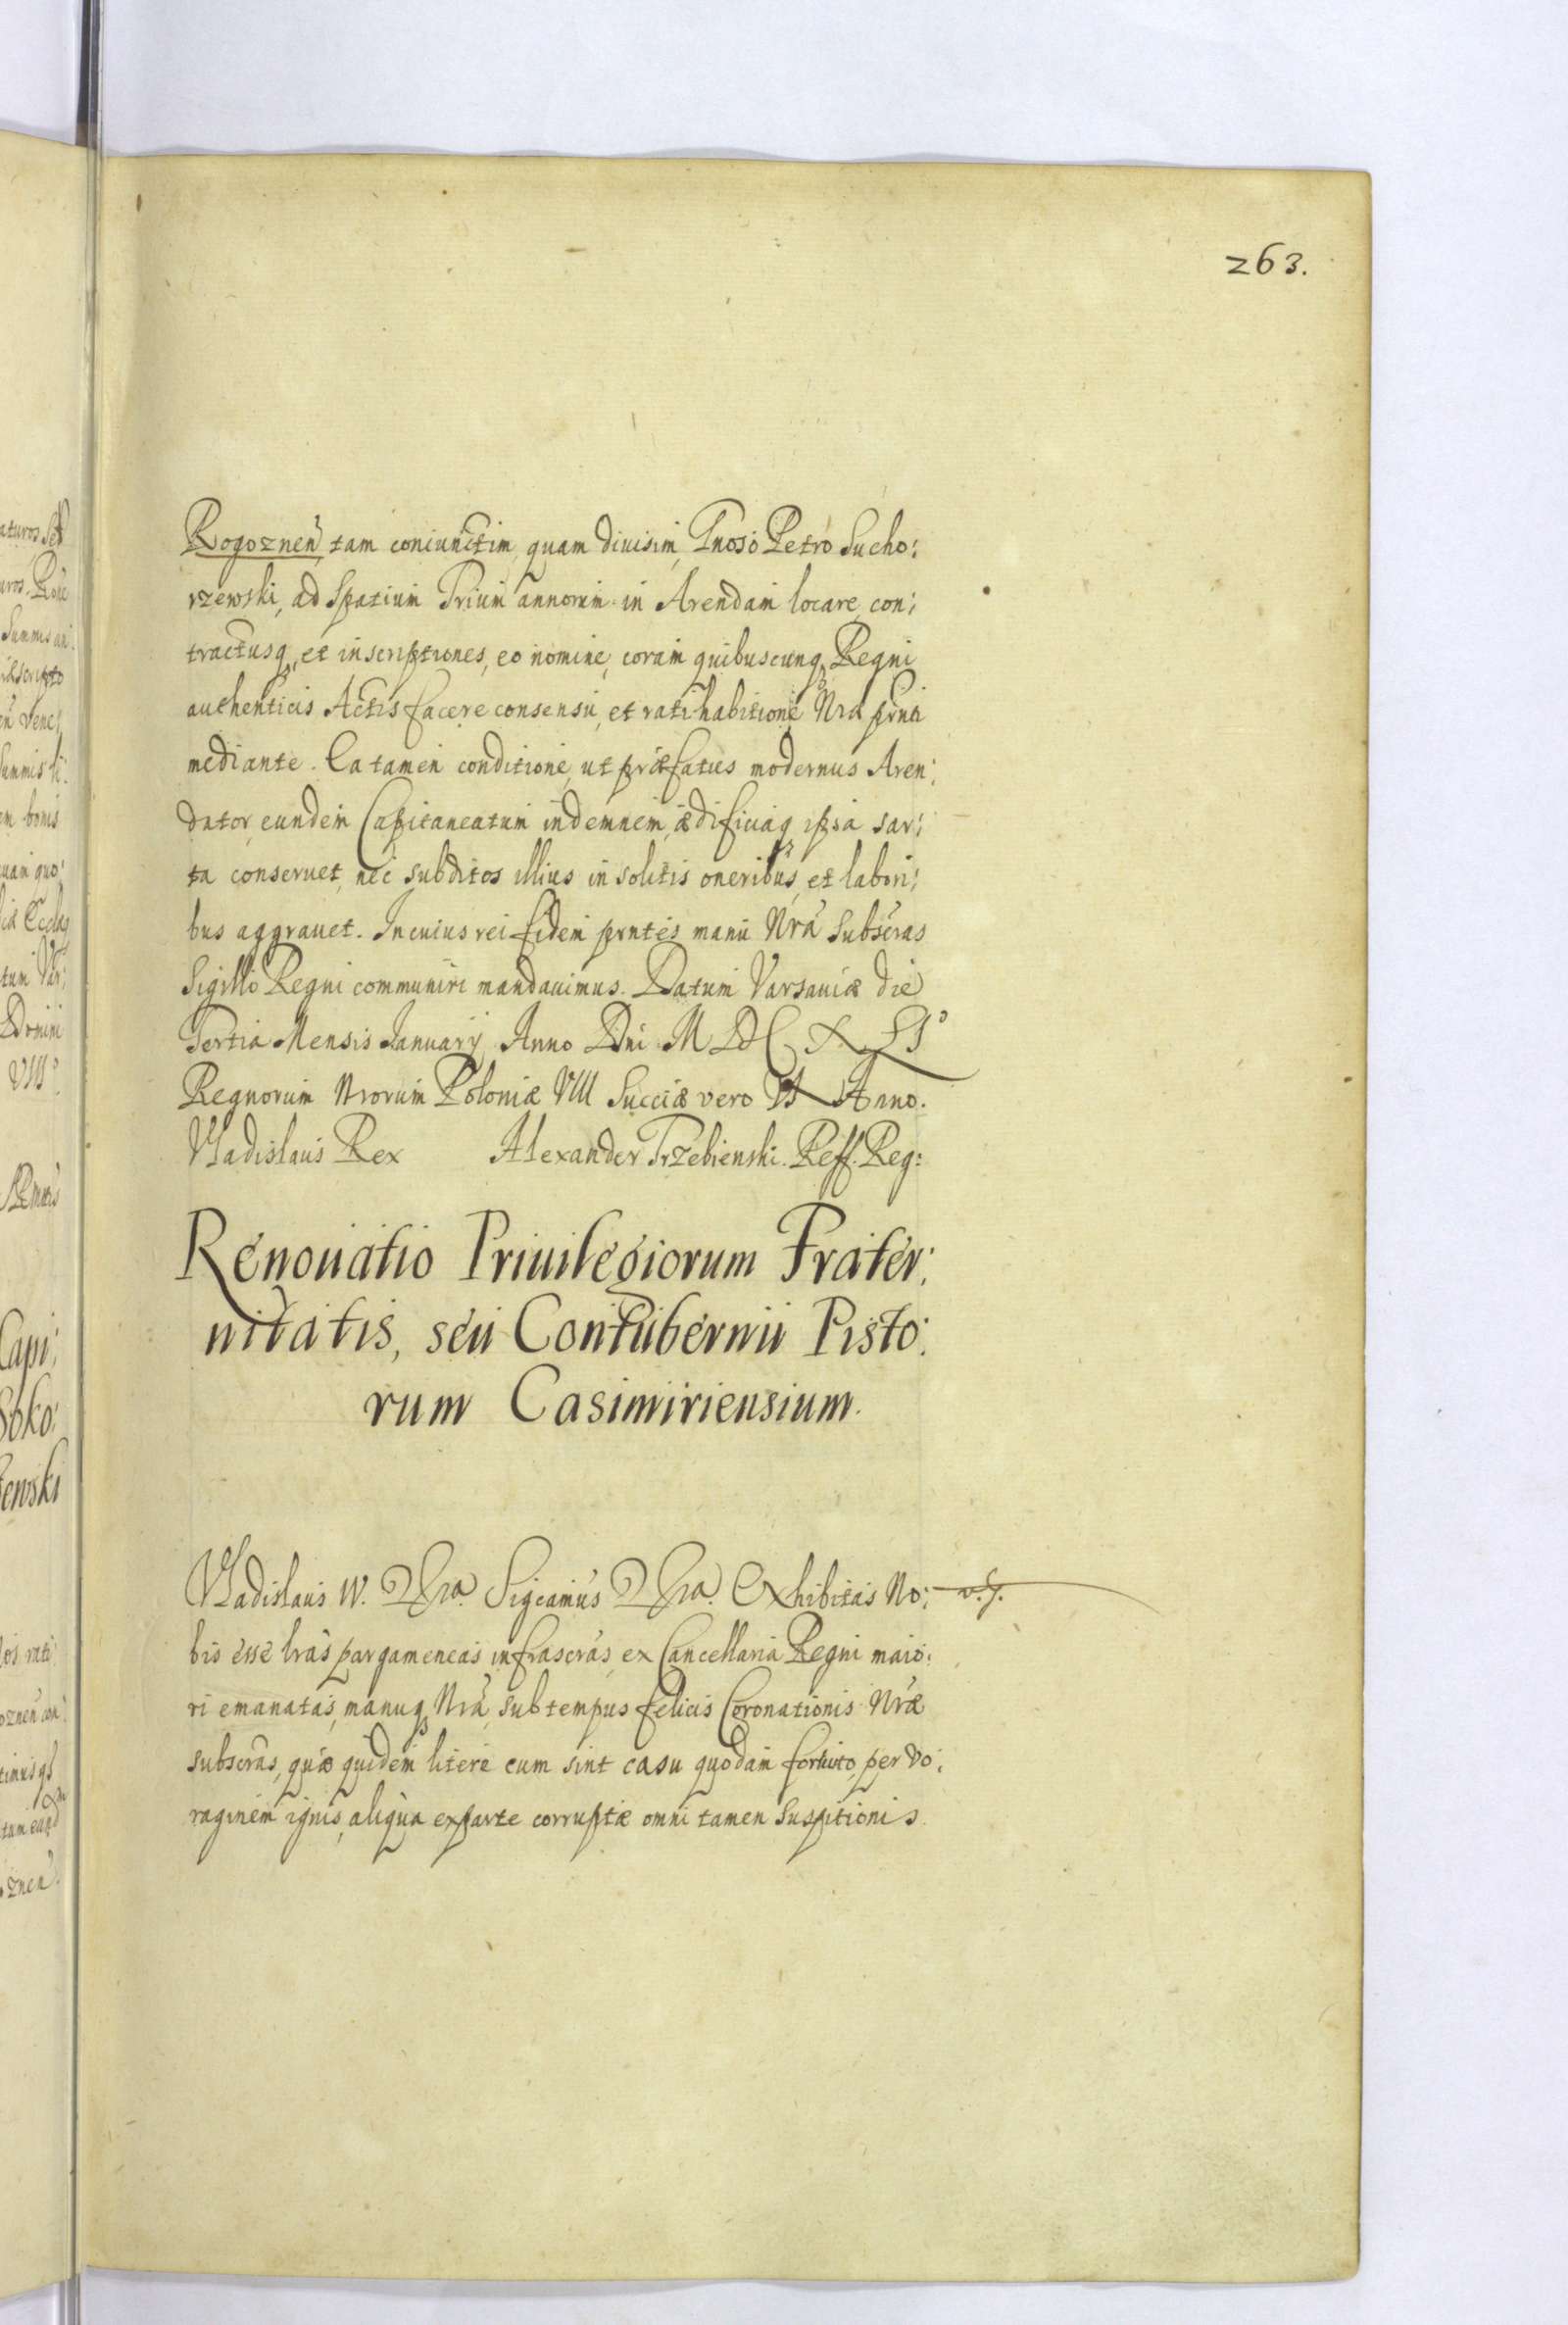 263.
Rogoznen, tam coniunctim, quam diuisim, Gnoso Petro Sucho:
rzewski, ad spatium Trium annorum in Arendam locare, con:
tractusq, et inscriptiones, eo nomine, coram quibuscunq Regni
authenticis Actis facere consensu, et ratihabitione Nra prnti
mediante. Ea tamen conditione, ut præfatus modernus Aren:
dator, eundem Capitaneatum indemnem, ædificiaq ipsa sar:
ta conseruet, nec subditos illius insolitis oneribus, et labori:
bus aggrauet. In cuius rei fidem prntes manu Nra subscras
Sigillo Regni communiri mandauimus. Datum Varsauiæ die
Tertia Mensis January Anno Dni M DC XLI°
Regnorum Nrorum Poloniæ VIII Sueciæ vero IX Anno.
Vladislaus Rex Alexander Trzebienski. Reff. Reg:
Renouatio Priuilegiorum Frater:
nitatis, seu Contubernii Pisto:
rum Casimiriensium.
Vladislaus IV. &ra. Sigcamus &ra. Exhibitas No:
bis esse lras pargameneas infrascras, ex Cancellaria Regni maio:
ri emanatas, manuq Nra, sub tempus felicis Coronationis Nræ
subscras, quæ quidem litere cum sint casu quodam fortuito, per vo:
raginem ignis, aliqua ex parte corruptæ omni tamen suspitionis